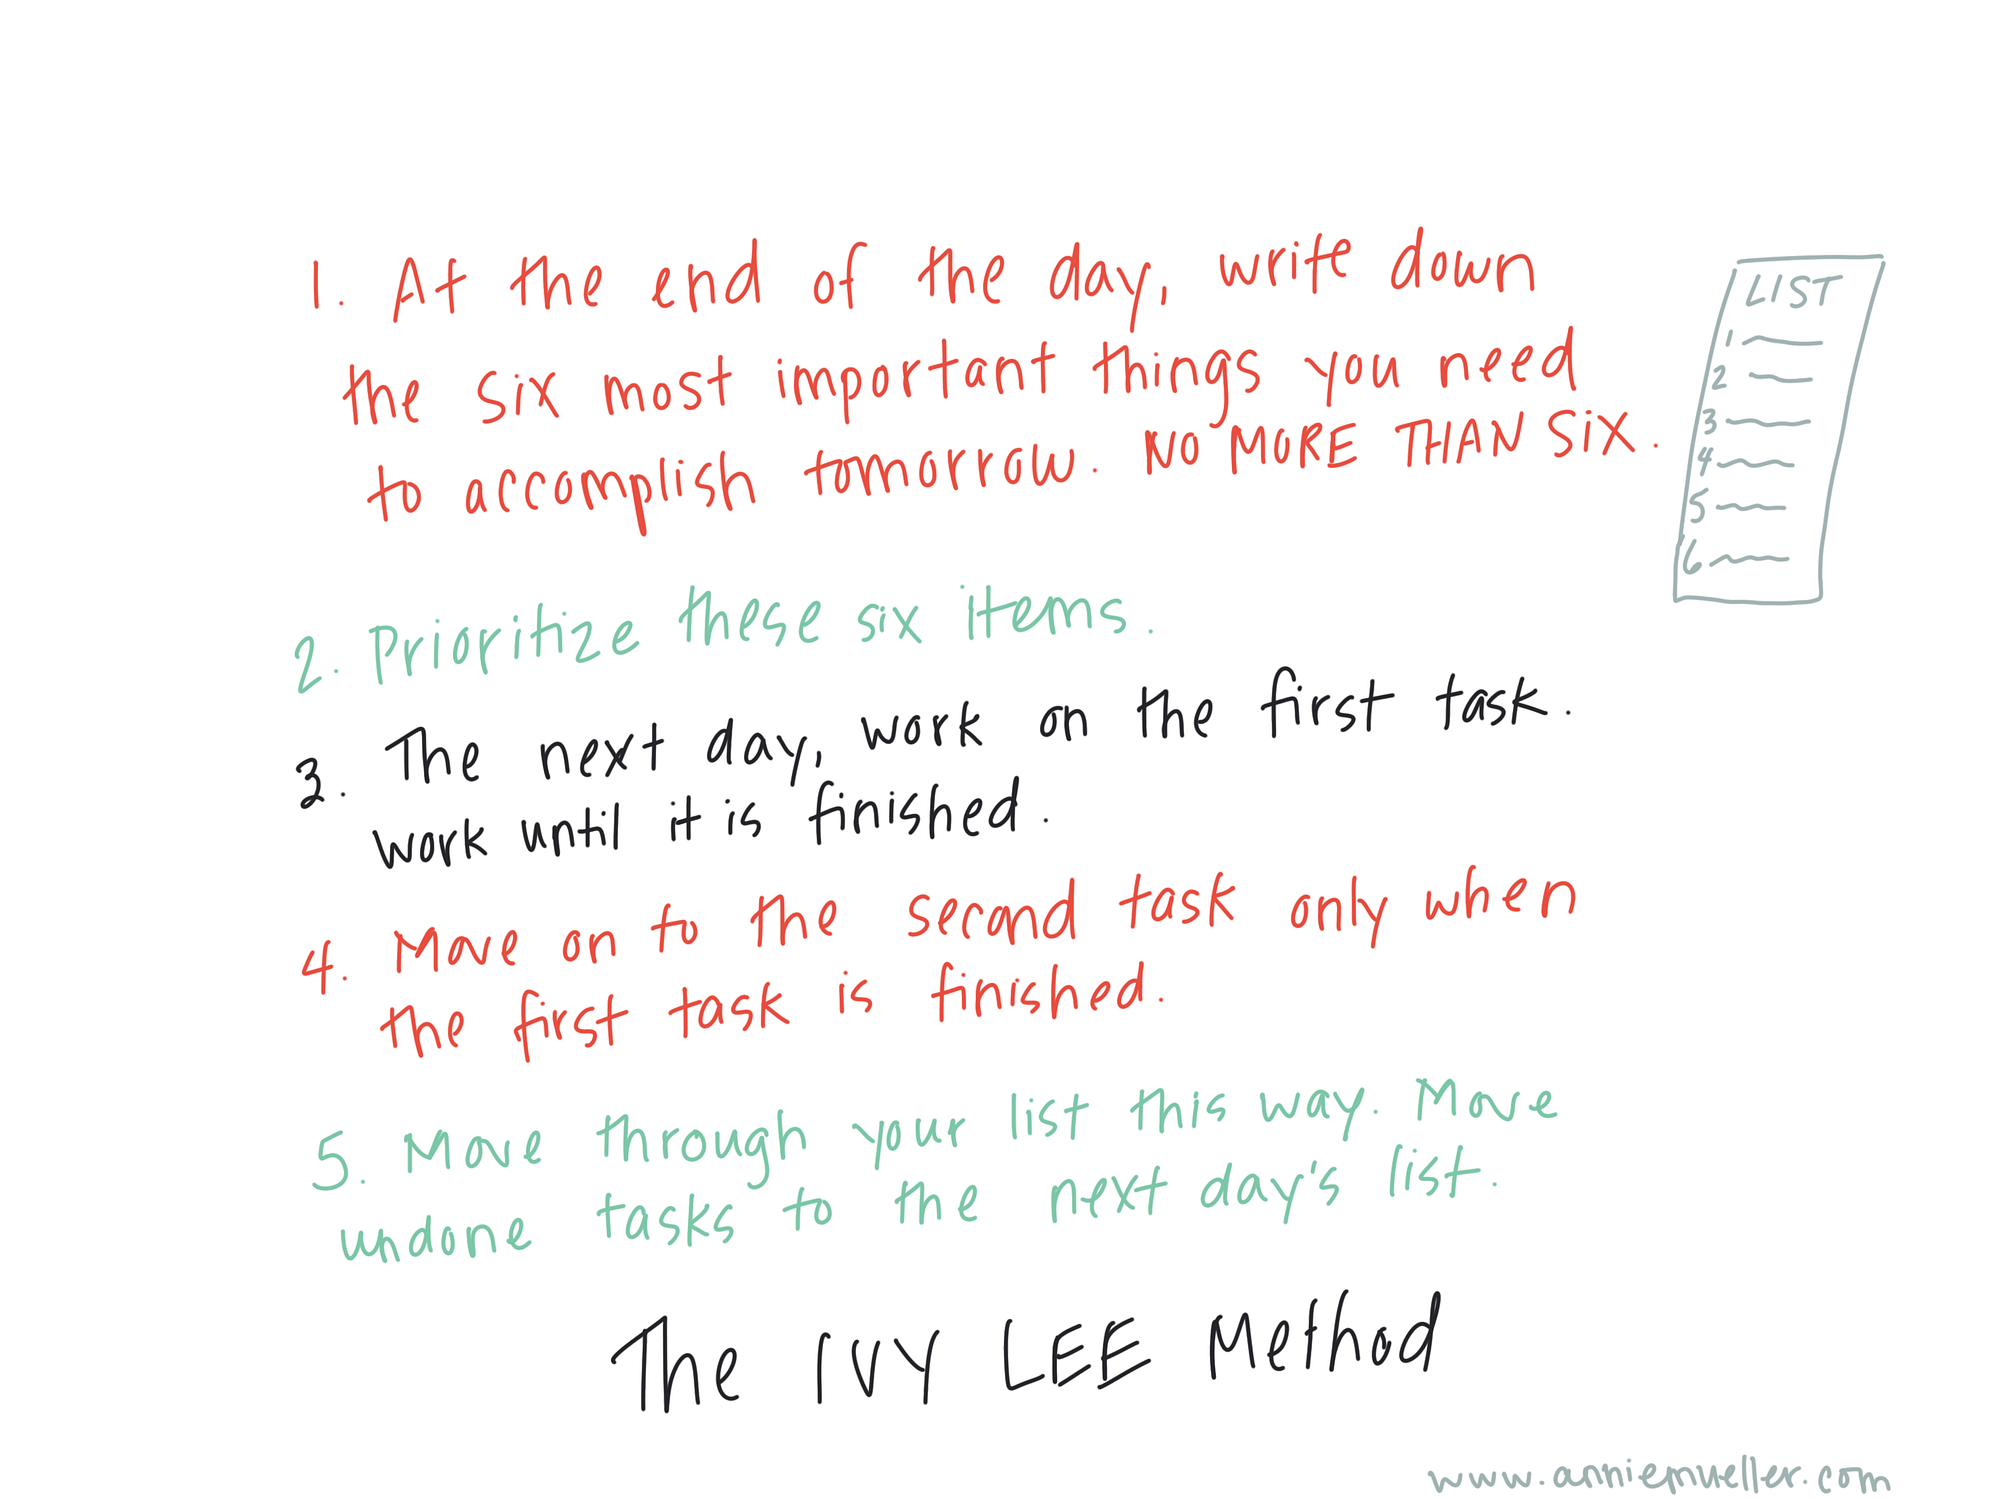 1. At the end of the day, write down
the six most important things you need
to accomplish tomorrow. NO MORE THAN SiX.
LIST
1
2
3
4
5
6
2. Prioritize these six items.
3. The next day, work on the first task.
work until it is finished.
4. Move on to the second task only when
the first task is finished.
5. Move through your list this way. Move
undone tasks to the next day's list.
The IVY LEE Method
www.anniemueller.com